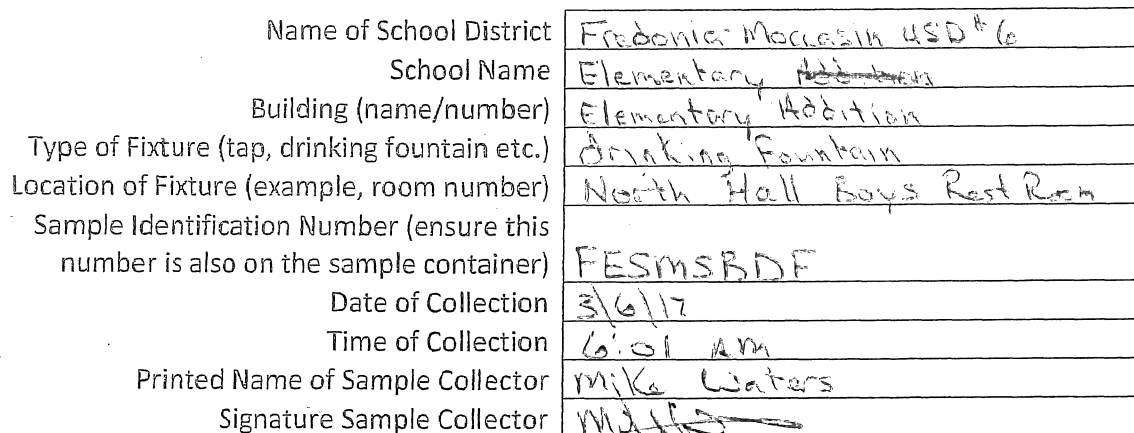 Name of School District Fredonia-Moccasin USD #6
School Name Elementary
Building (name/number) Elementary Addition
Type of Fixture (tap, drinking fountain etc.) drinking Fountain
Location of Fixture (example, room number) North Hall Boys Rest Room
Sample Identification Number (ensure this
number is also on the sample container) FESMSBDF
Date of Collection 3\6\17
Time of Collection 6:01 AM
Printed Name of Sample Collector Mike Waters
Signature Sample Collector